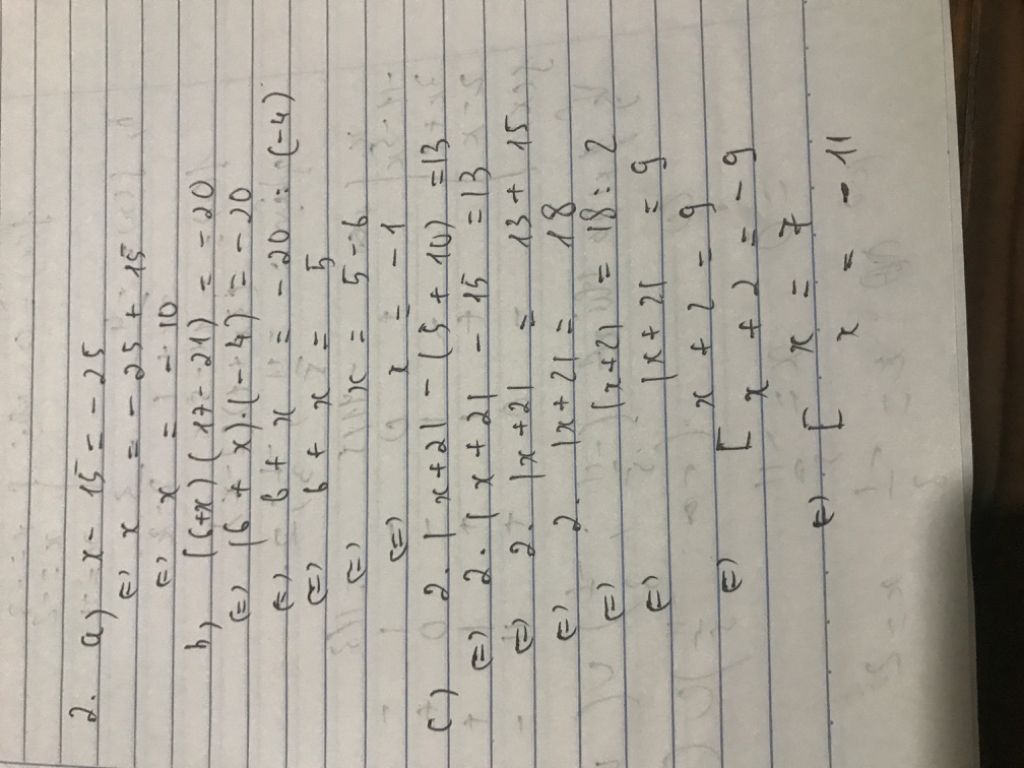 2. a) x - 15 = - 25
(=) x = - 25 + 15
(=) x = - 10
b, (6+x)(17-21) = -20
(=) (6 + x).(-4) = -20
(=) 6 + x = -20 : (-4)
(=) 6 + x = 5
(=) x = 5 - 6
(=) x = -1
c) 2. |x+2| - (5 + 10) = 13
(=) 2. |x + 2| - 15 = 13
(=) 2. |x+2| = 13 + 15
(=) 2. |x+2| = 18
(=) |x+2| = 18 : 2
(=) |x+2| = 9
x + 2 = 9
(=) [ x + 2 = - 9
(=) [ x = 7
x = - 11